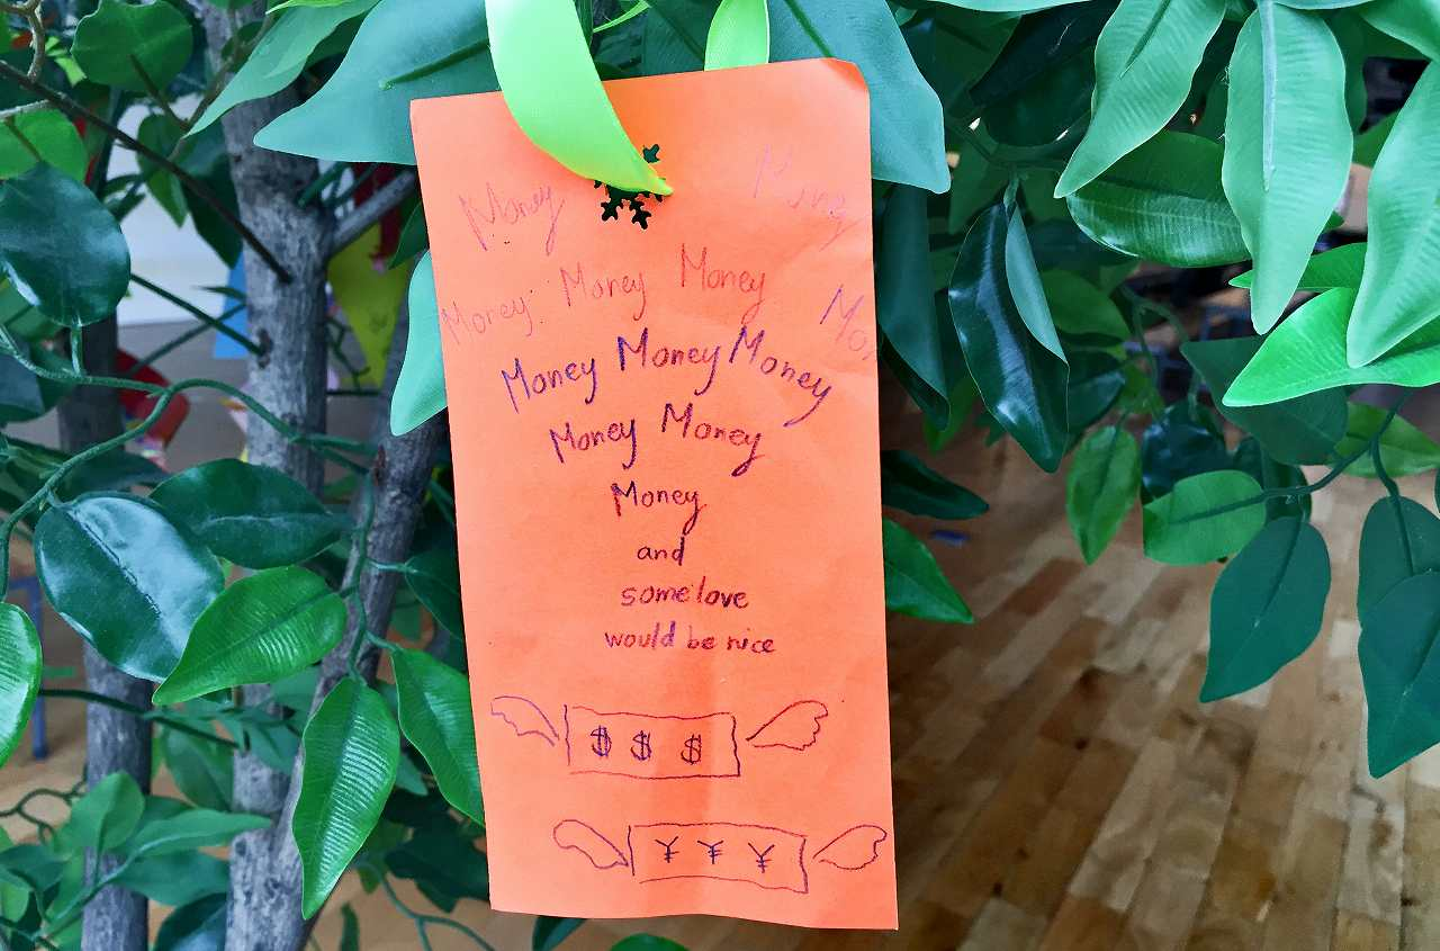 Money Money
Money Money Money Mo
Money Money Money
Money Money
Money
and
some love
would be nice
$ $ $
¥ ¥ ¥